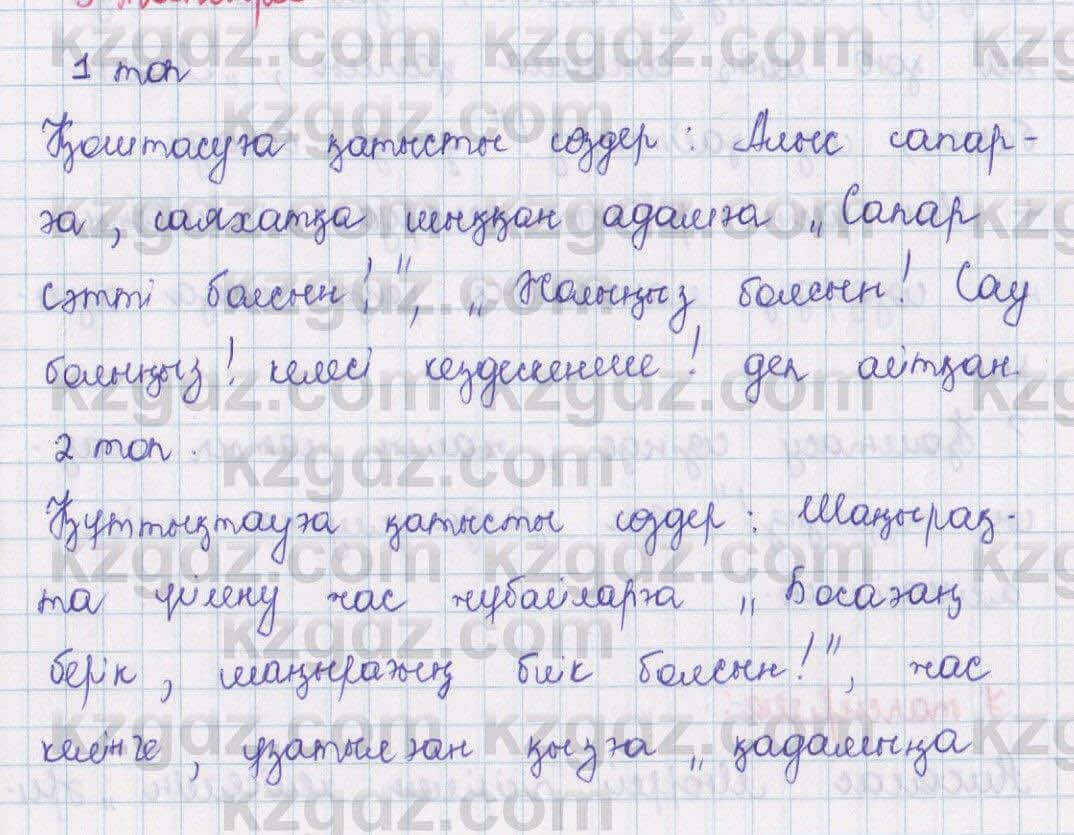 1 топ
Қоштасуға қатысты сөздер: Алыс сапар-
ға, саяхатқа шыққан адамға „Сапар
сәтті болсын!", „Жолыңыз болсын! Сау
болыңыз! келесі кездескенше! деп айтқан.
2 топ.
Құттықтауға қатысты сөздер: Шаңырақ-
та үйлену жас жұбайларға „Босағаң
берік, шаңырағың биік болсын!", жас
келінге, ұзатылған қызға „қадамыңа
kzgdz.com